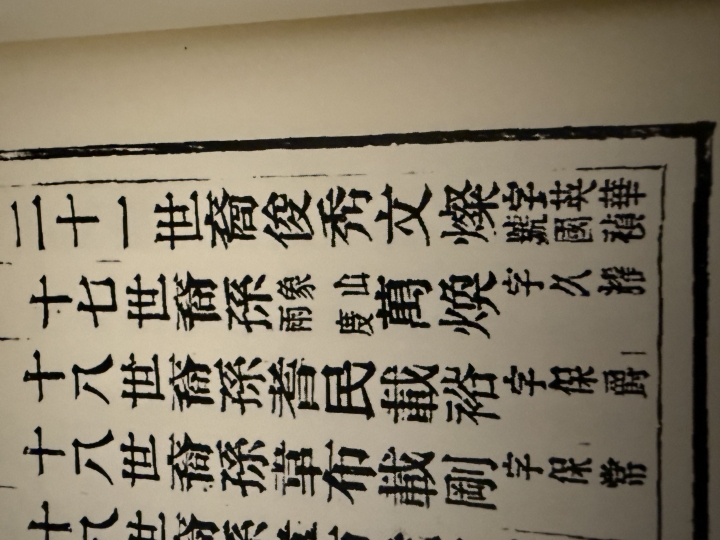 二十一世裔俊秀文燦字英華
號國禎
十七世裔孫象山雨度萬煥字久
十八世裔孫耆民載裕字保爵
十八世裔孫韋布載剛字保常
十八世裔孫